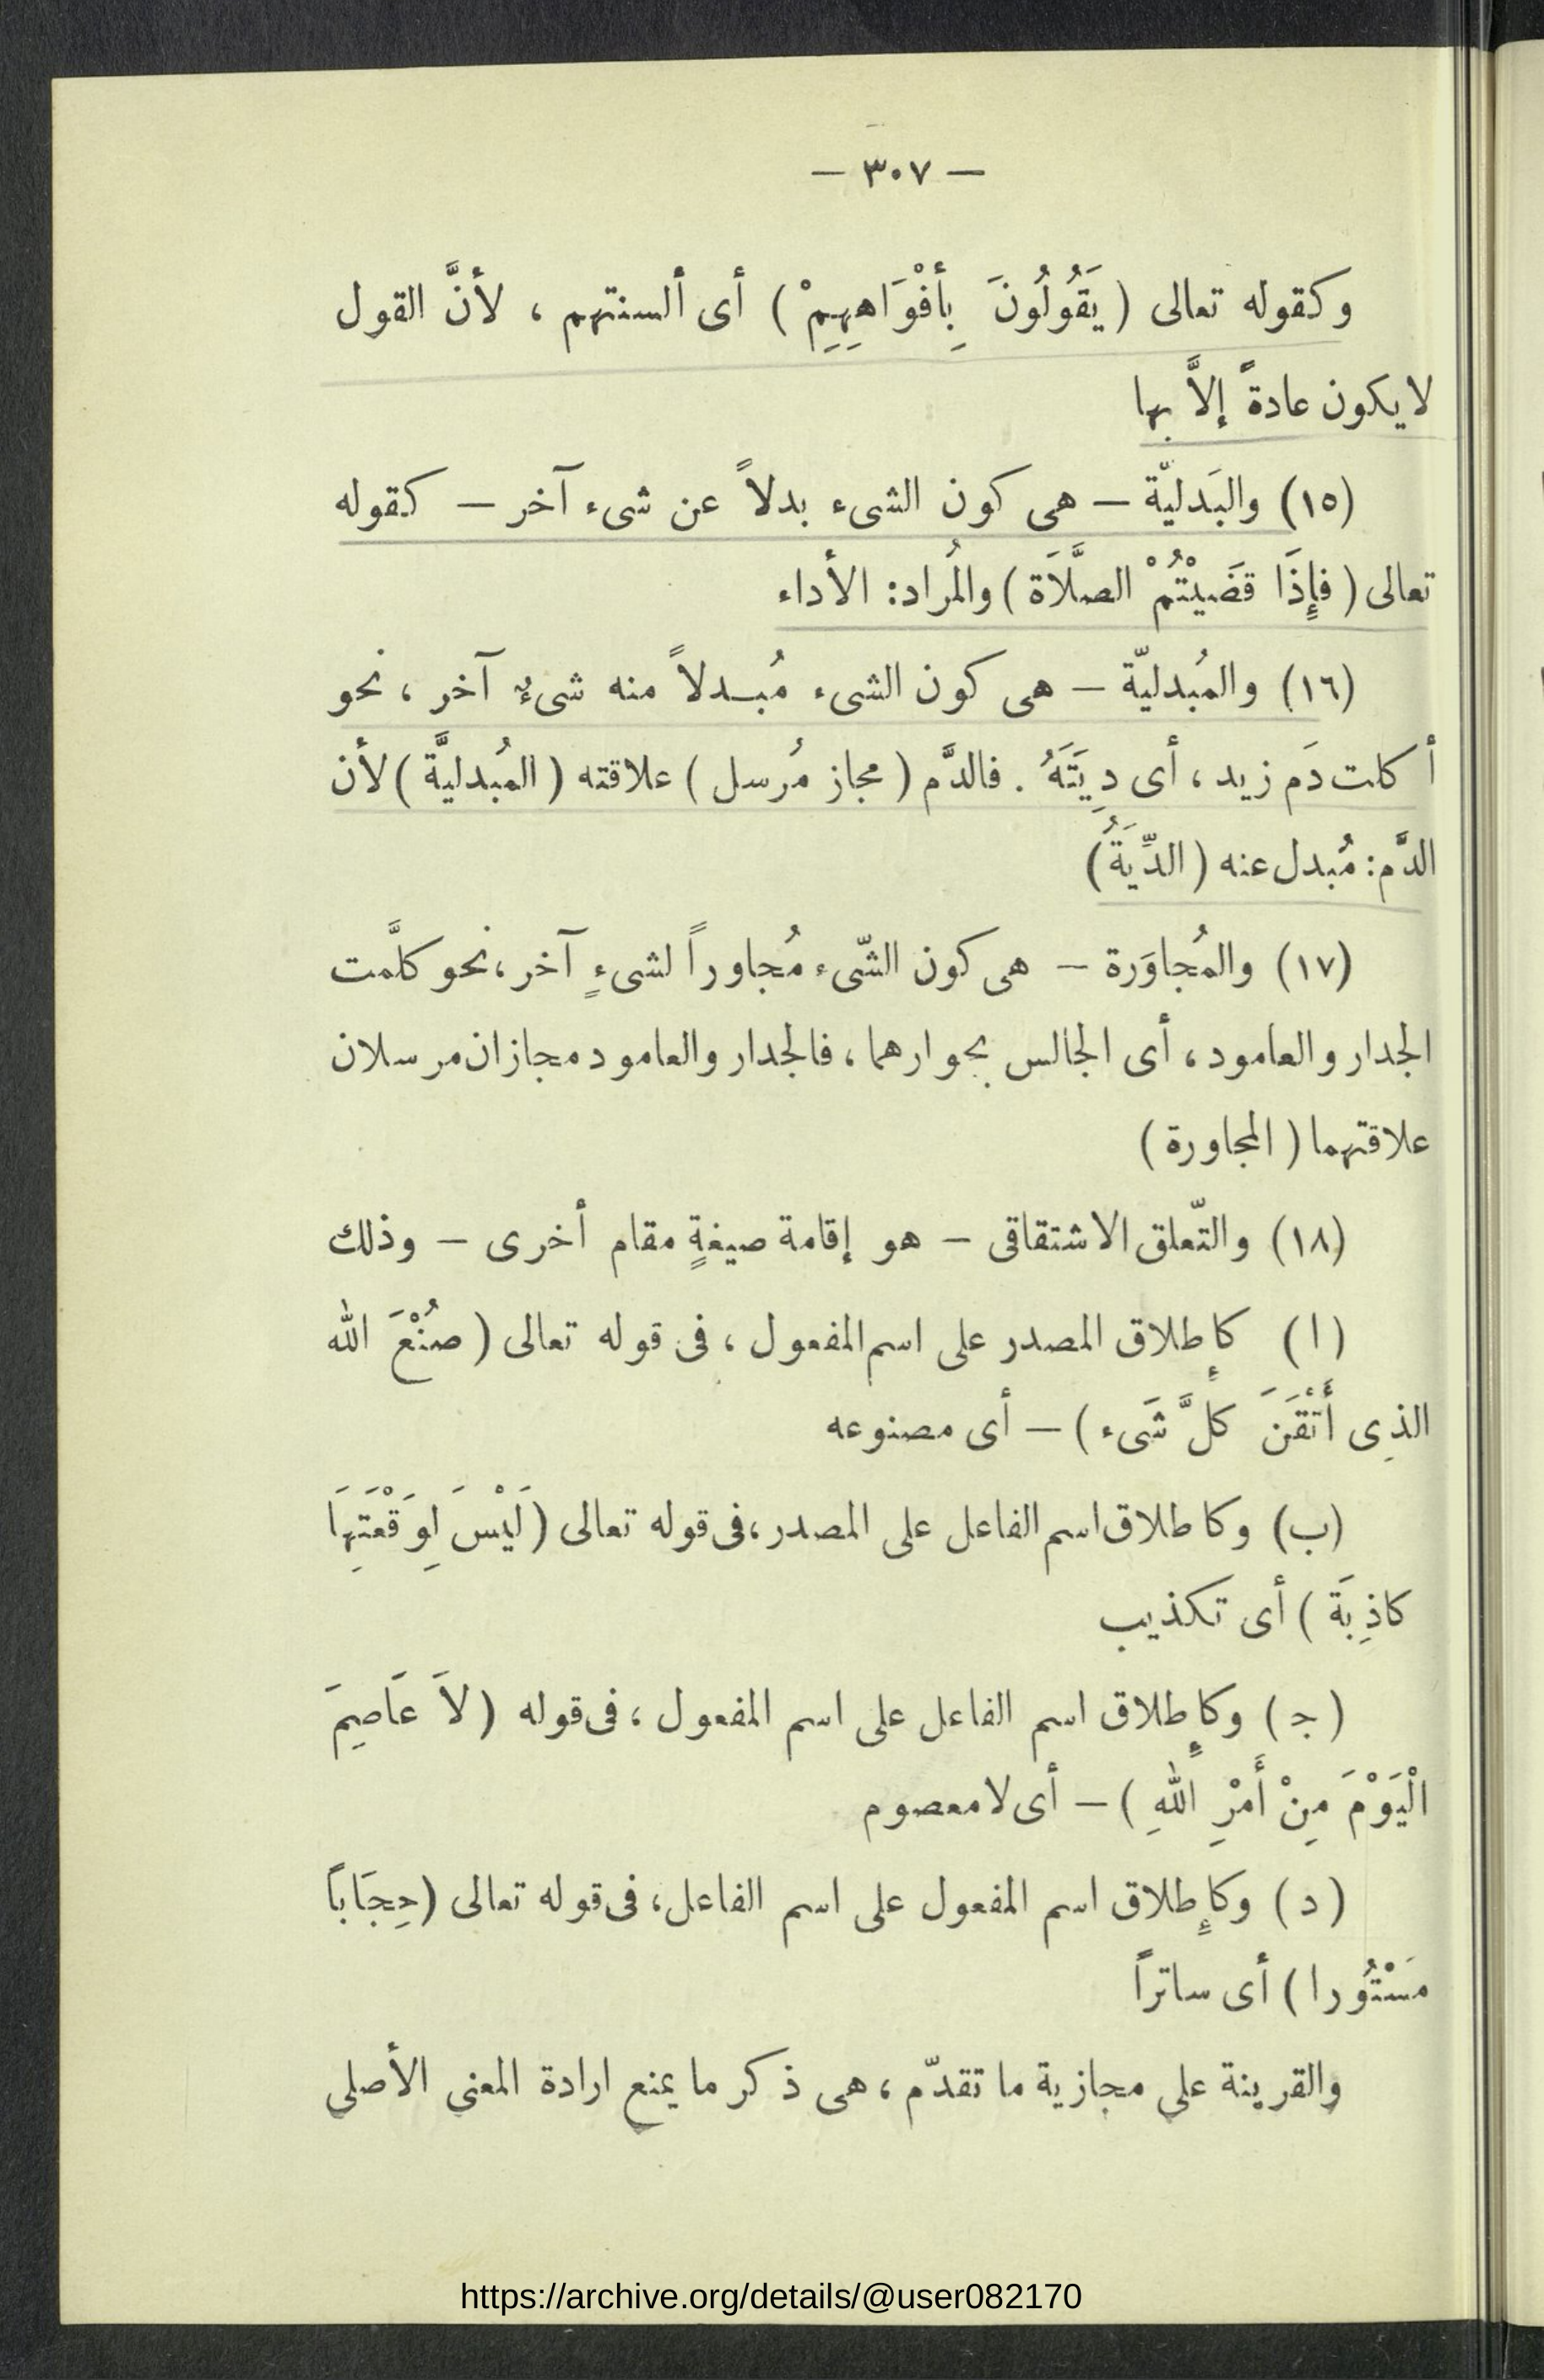 — ٣٠٧ —
وكقوله تعالى ( يَقُولُونَ بِأَفْوَاهِهِمْ ) أى ألسنتهم ، لأنَّ القول
لا يكون عادةً إلاَّ بها
(١٥) والبَدليّة – هى كون الشىء بدلاً عن شىء آخر – كقوله
تعالى ( فإِذَا قضَيْتُمْ الصَّلاَة ) والمُراد: الأداء
(١٦) والمُبدليّة – هى كون الشىء مُبدلاً منه شىءٌ آخر ، نحو
أكلت دَم زيد ، أى دِيَتَهُ . فالدَّم ( مجاز مُرسل ) علاقته ( المُبدليَّة ) لأن
الدَّم: مُبدل عنه ( الدِّيَةُ )
(١٧) والمُجاوَرة – هى كون الشّىء مُجاوراً لشىءٍ آخر ، نحو كلَّمت
الجدار والعامود ، أى الجالس بجوارهما ، فالجدار والعامود مجازان مرسلان
علاقتهما ( المجاورة )
(١٨) والتّعلق الاشتقاقى – هو إقامة صيغةٍ مقام أخرى – وذلك
( ا ) كإطلاق المصدر على اسم المفعول ، فى قوله تعالى ( صُنْعَ الله
الذِى أَتْقَنَ كلَّ شَىء ) – أى مصنوعه
(ب) وكاطلاق اسم الفاعل على المصدر ، فى قوله تعالى ( لَيْسَ لِوَقْعَتِهَا
كاذِبَة ) أى تكذيب
( ج ) وكإطلاق اسم الفاعل على اسم المفعول ، فى قوله ( لاَ عَاصِمَ
الْيَوْمَ مِنْ أَمْرِ اللهِ ) – أى لا معصوم
( د ) وكإطلاق اسم المفعول على اسم الفاعل ، فى قوله تعالى ( حِجَاباً
مَسْتُورا ) أى ساتراً
والقرينة على مجازية ما تقدّم ، هى ذكر ما يمنع ارادة المعنى الأصلى
https://archive.org/details/@user082170